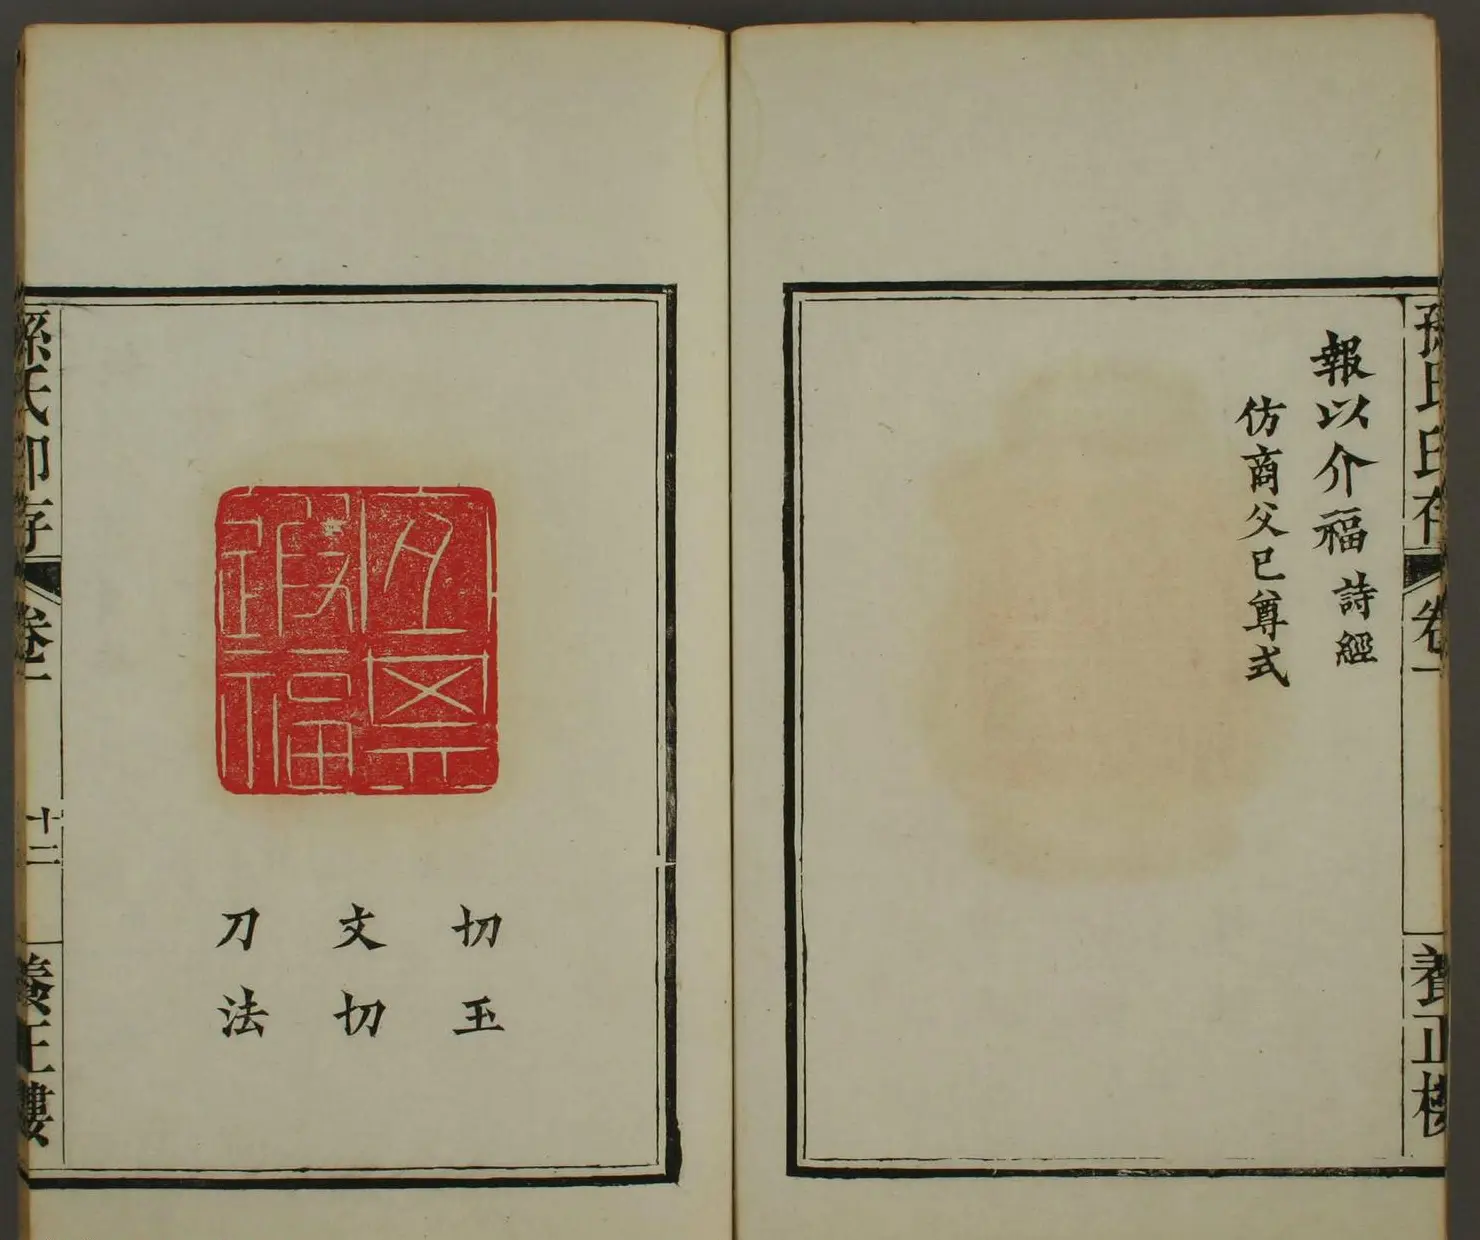 孫氏印存 卷一 養正樓
報以介福 詩經
仿商父巳尊式
遐福
切玉
文切
刀法
孫氏印存 卷一 十二 養正樓